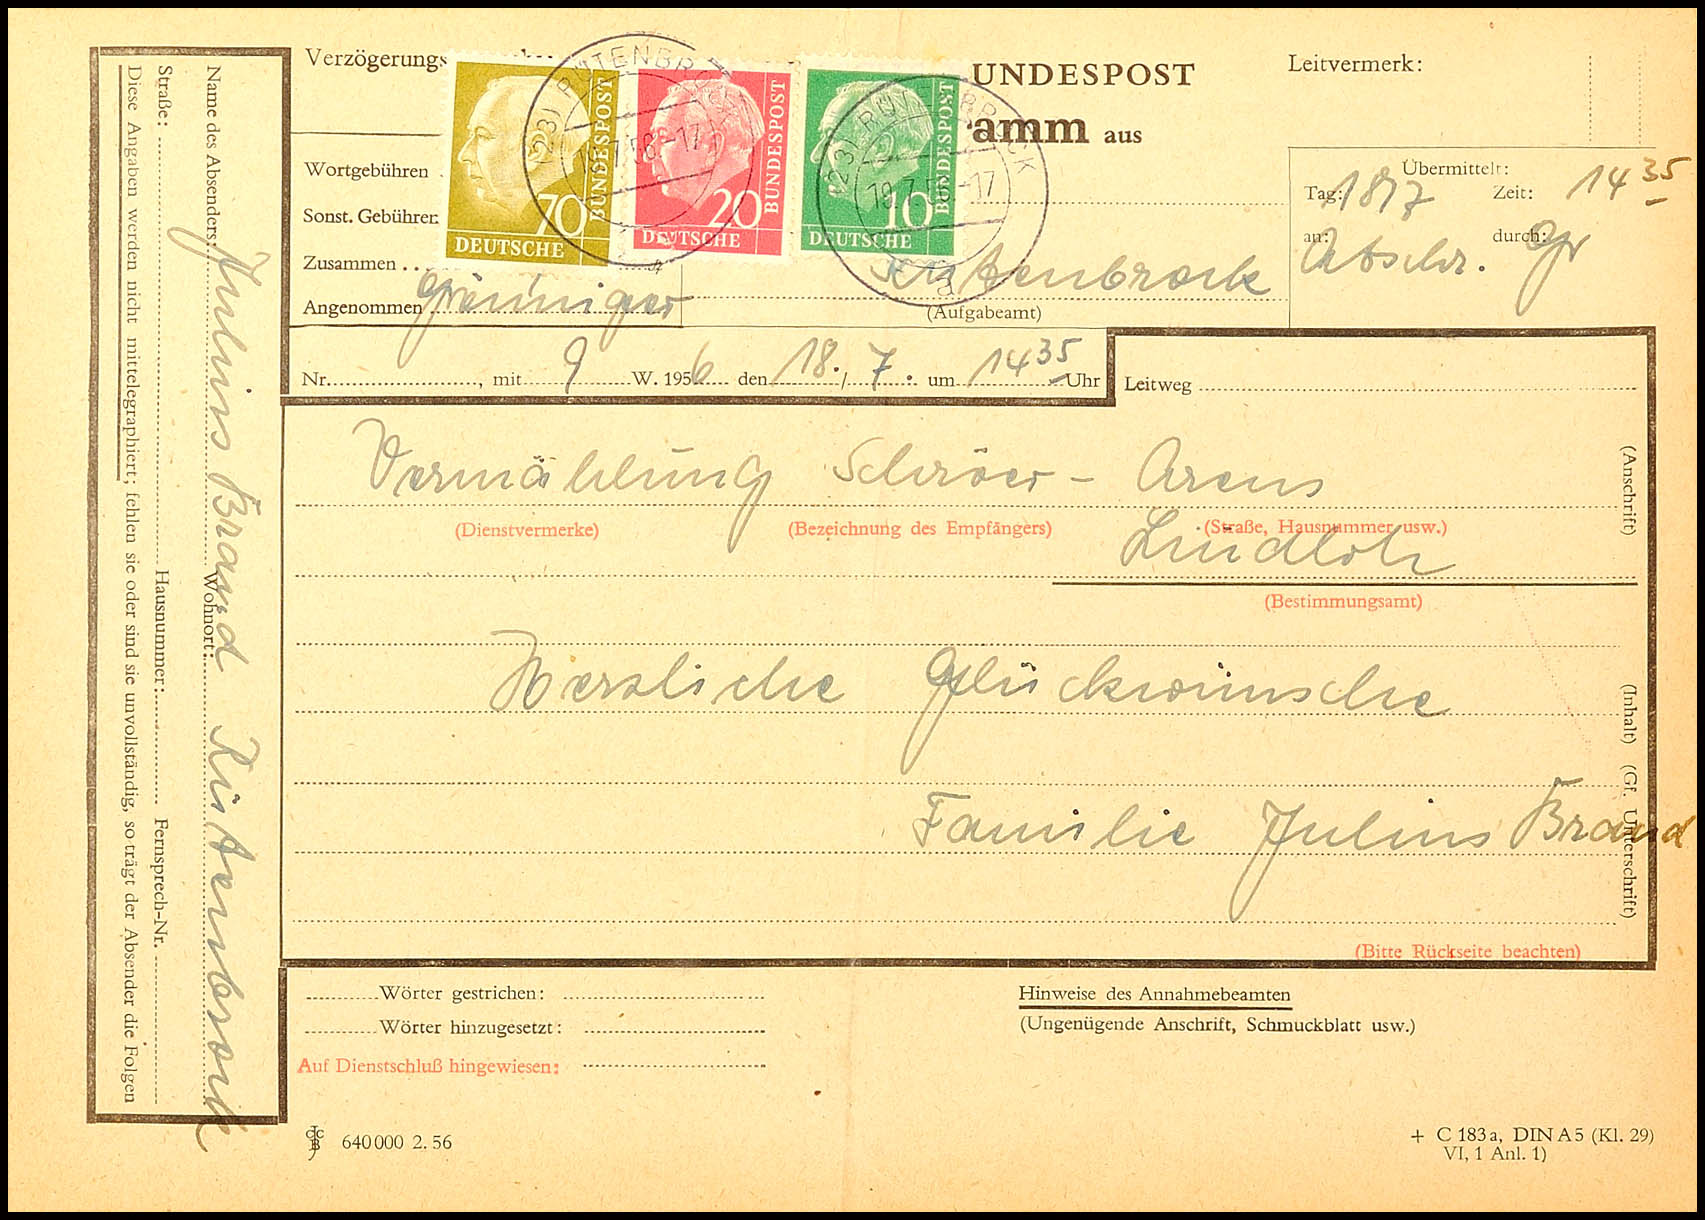 Verzögerungs
UNDESPOST
Leitvermerk:
amm aus
70 BUNDESPOST DEUTSCHE
20 BUNDESPOST DEUTSCHE
10 BUNDESPOST DEUTSCHE
(23) RÜTENBROCK
(23) RÜTENBROCK
Übermittelt:
Tag: 18/7 Zeit: 14 35
an: Abschr. durch: Gr
Wortgebühren
Sonst. Gebühren
Zusammen
Angenommen Gräuniger
Rütenbrock
(Aufgabeamt)
Nr. , mit 9 W. 1956 den 18. / 7. um 14 35 Uhr
Leitweg
Vermählung Schröer - Arens
(Dienstvermerke) (Bezeichnung des Empfängers) (Straße, Hausnummer usw.)
(Anschrift)
Lindloh
(Bestimmungsamt)
Herzliche Glückwünsche
(Inhalt)
Familie Julius Brand
(Gf. Unterschrift)
(Bitte Rückseite beachten)
Name des Absenders: Julius Brand Wohnort: Rütenbrock
Straße: Hausnummer: Fernsprech-Nr.
Diese Angaben werden nicht mittelegraphiert; fehlen sie oder sind sie unvollständig, so trägt der Absender die Folgen
Wörter gestrichen:
Wörter hinzugesetzt:
Auf Dienstschluß hingewiesen:
Hinweise des Annahmebeamten
(Ungenügende Anschrift, Schmuckblatt usw.)
640 000 2. 56
+ C 183 a, DIN A 5 (Kl. 29)
VI, 1 Anl. 1)